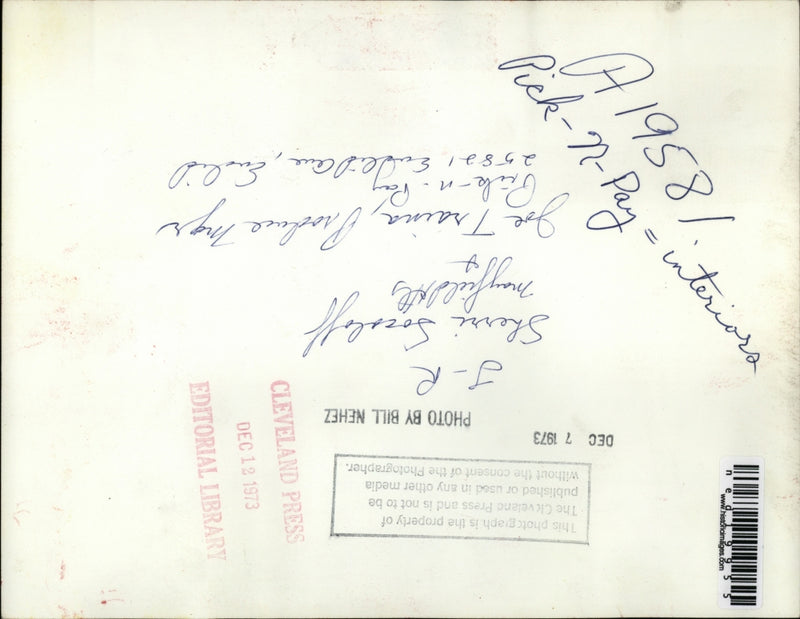 A 1958 /
Pick-N-Pay = interiors
This photograph is the property of
The Cleveland Press and is not to be
published or used in any other media
without the consent of the Photographer.
DEC 7 1973
PHOTO BY BILL NEHEZ
J-R
Sherri Sososloff
Mayfield Hts
+
Joe Traina, Produce Mgr
Pick-n-Pay
25821 Euclid Ave, Euclid
CLEVELAND PRESS
DEC 12 1973
EDITORIAL LIBRARY
www.historicimages.com